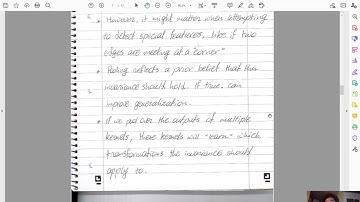 • However, it might matter when attempting
to detect special features, like if two
edges are meeting at a corner"
• Pooling reflects a prior belief that this
invariance should hold. If true, can
improve generalization.
• if we pool over the outputs of multiple
kernels, these kernels will "learn" which
transformations the invariance should
apply to.